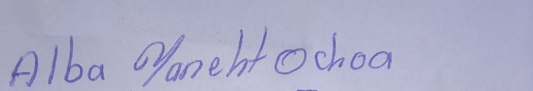 Alba Yaneht Ochoa